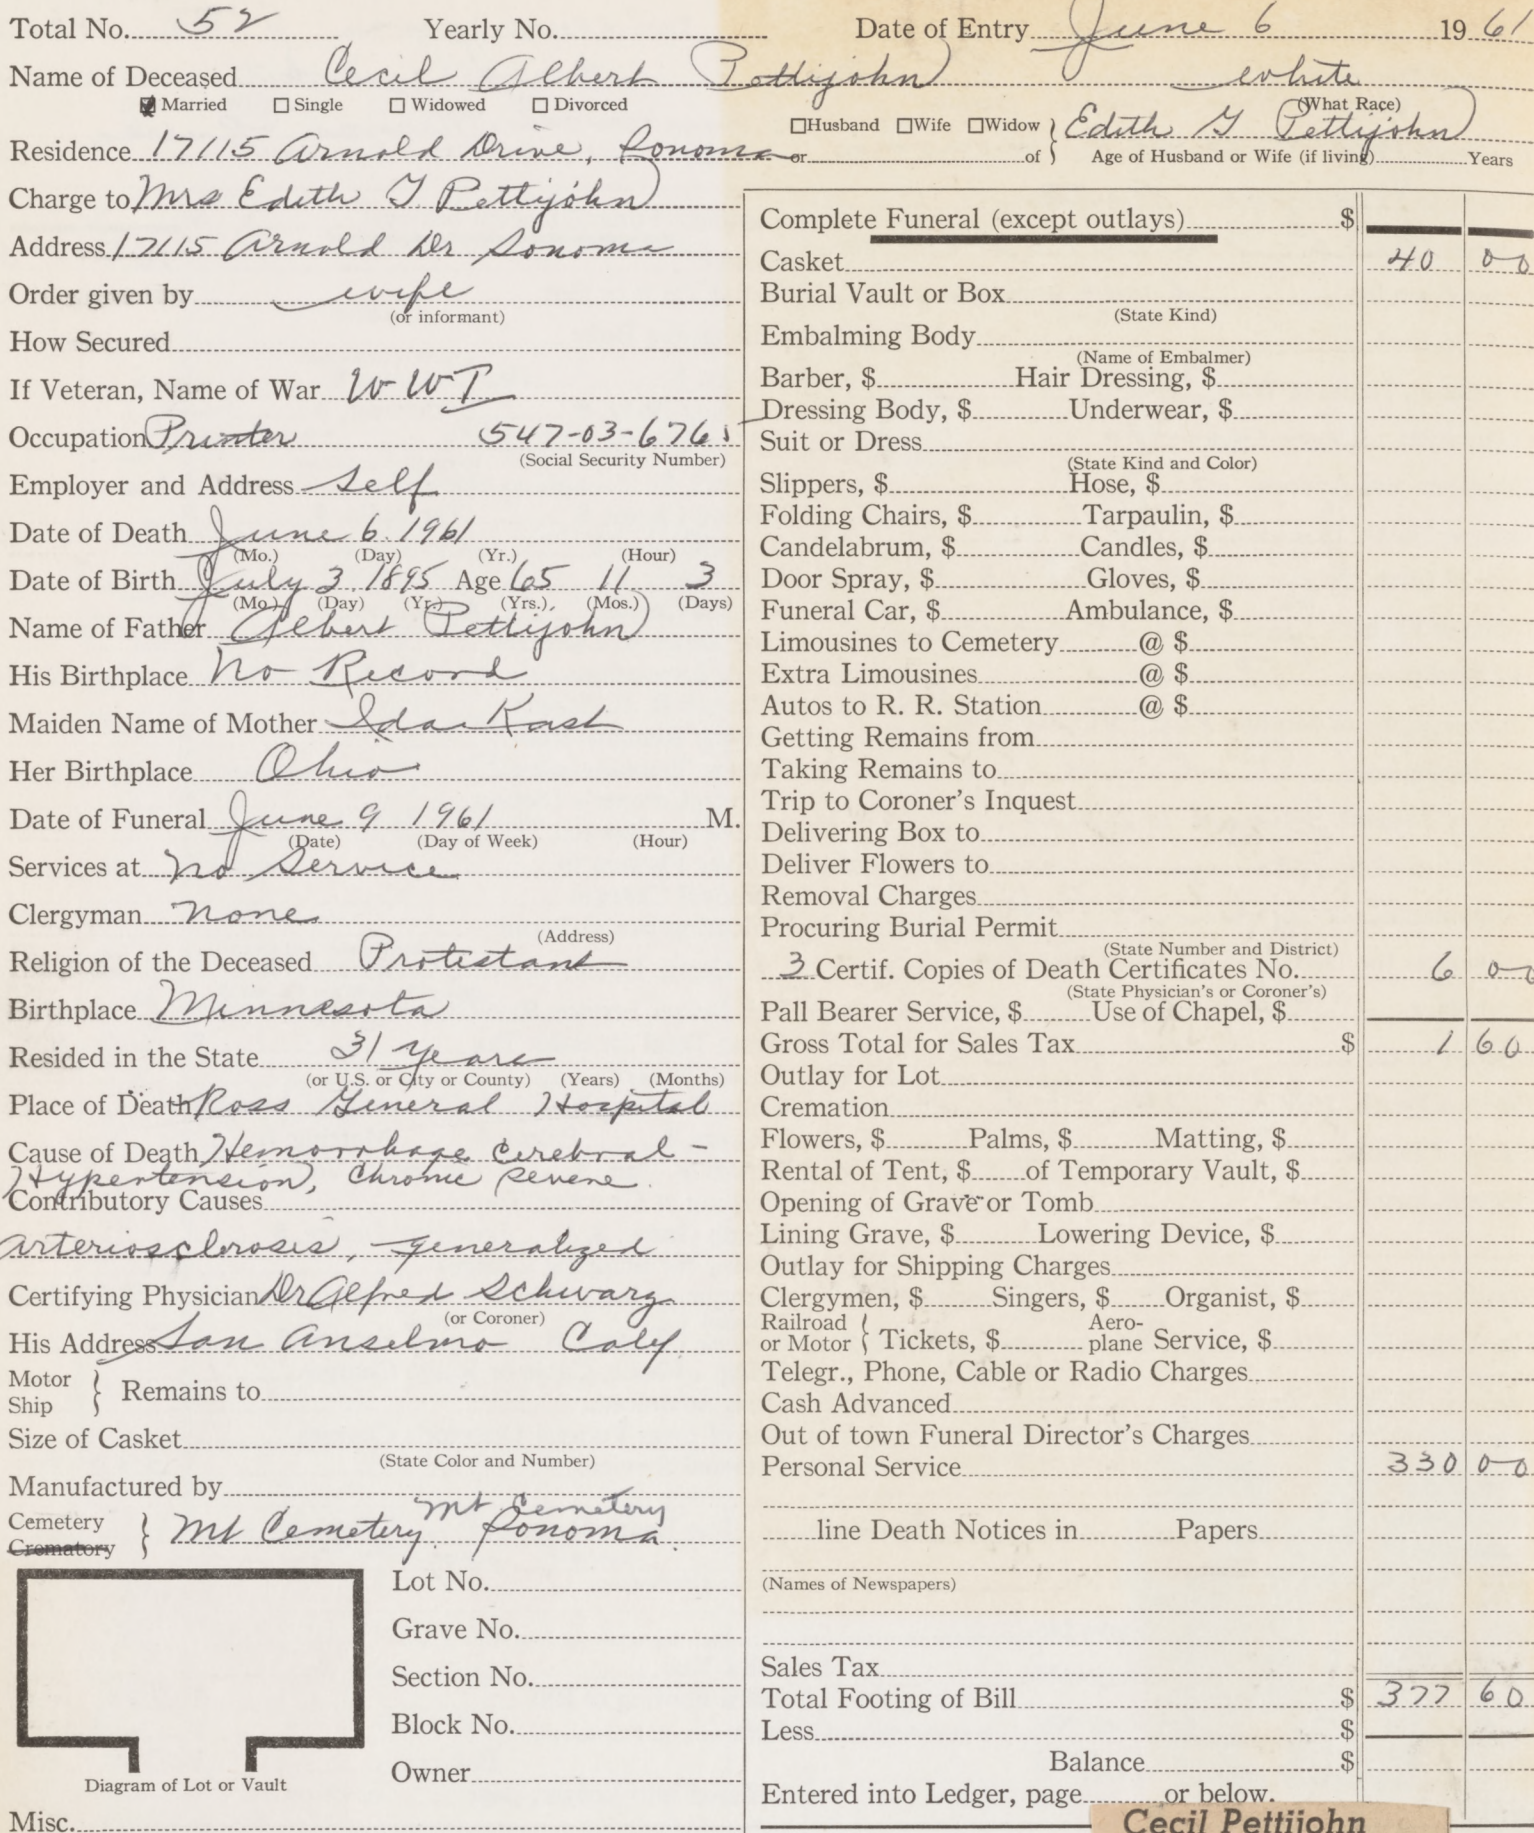 Total No. 52 Yearly No. Date of Entry June 6 1961
Name of Deceased Cecil Albert Pettijohn white
Married Single Widowed Divorced (What Race)
Husband Wife Widow } Edith G Pettijohn
Residence 17115 Arnold Drive, Sonoma or of } Age of Husband or Wife (if living) Years
Charge to Mrs Edith G Pettijohn
Address 17115 Arnold Dr Sonoma
Order given by wife
(or informant)
How Secured
If Veteran, Name of War WWI
Occupation Printer 547-03-6761
(Social Security Number)
Employer and Address Self
Date of Death June 6 1961
(Mo.) (Day) (Yr.) (Hour)
Date of Birth July 3 1895 Age 65 11 3
(Mo.) (Day) (Yr.) (Yrs.) (Mos.) (Days)
Name of Father Albert Pettijohn
His Birthplace No Record
Maiden Name of Mother Ida Kast
Her Birthplace Ohio
Date of Funeral June 9 1961 M.
(Date) (Day of Week) (Hour)
Services at No Service
Clergyman None
(Address)
Religion of the Deceased Protestant
Birthplace Minnesota
Resided in the State 31 years
(or U.S. or City or County) (Years) (Months)
Place of Death Ross General Hospital
Cause of Death Hemorrhage Cerebral -
Hypertension, Chronic Severe
Contributory Causes
Arteriosclerosis, generalized
Certifying Physician Dr Alfred Schwarz
(or Coroner)
His Address San Anselmo Calif
Motor
Ship } Remains to
Size of Casket
(State Color and Number)
Manufactured by
Mt Cemetery
Cemetery
Crematory } Mt Cemetery Sonoma
Lot No.
Grave No.
Section No.
Block No.
Owner
Diagram of Lot or Vault
Misc.
Complete Funeral (except outlays) $
Casket 40 00
Burial Vault or Box
(State Kind)
Embalming Body
(Name of Embalmer)
Barber, $ Hair Dressing, $
Dressing Body, $ Underwear, $
Suit or Dress
(State Kind and Color)
Slippers, $ Hose, $
Folding Chairs, $ Tarpaulin, $
Candelabrum, $ Candles, $
Door Spray, $ Gloves, $
Funeral Car, $ Ambulance, $
Limousines to Cemetery @ $
Extra Limousines @ $
Autos to R. R. Station @ $
Getting Remains from
Taking Remains to
Trip to Coroner's Inquest
Delivering Box to
Deliver Flowers to
Removal Charges
Procuring Burial Permit
(State Number and District)
3 Certif. Copies of Death Certificates No. 6 00
(State Physician's or Coroner's)
Pall Bearer Service, $ Use of Chapel, $
Gross Total for Sales Tax $ 1 60
Outlay for Lot
Cremation
Flowers, $ Palms, $ Matting, $
Rental of Tent, $ of Temporary Vault, $
Opening of Grave or Tomb
Lining Grave, $ Lowering Device, $
Outlay for Shipping Charges
Clergymen, $ Singers, $ Organist, $
Railroad
or Motor { Tickets, $ Aero-
plane Service, $
Telegr., Phone, Cable or Radio Charges
Cash Advanced
Out of town Funeral Director's Charges
Personal Service 330 00
line Death Notices in Papers
(Names of Newspapers)
Sales Tax
Total Footing of Bill $ 377 60
Less $
Balance $
Entered into Ledger, page or below.
Cecil Pettijohn